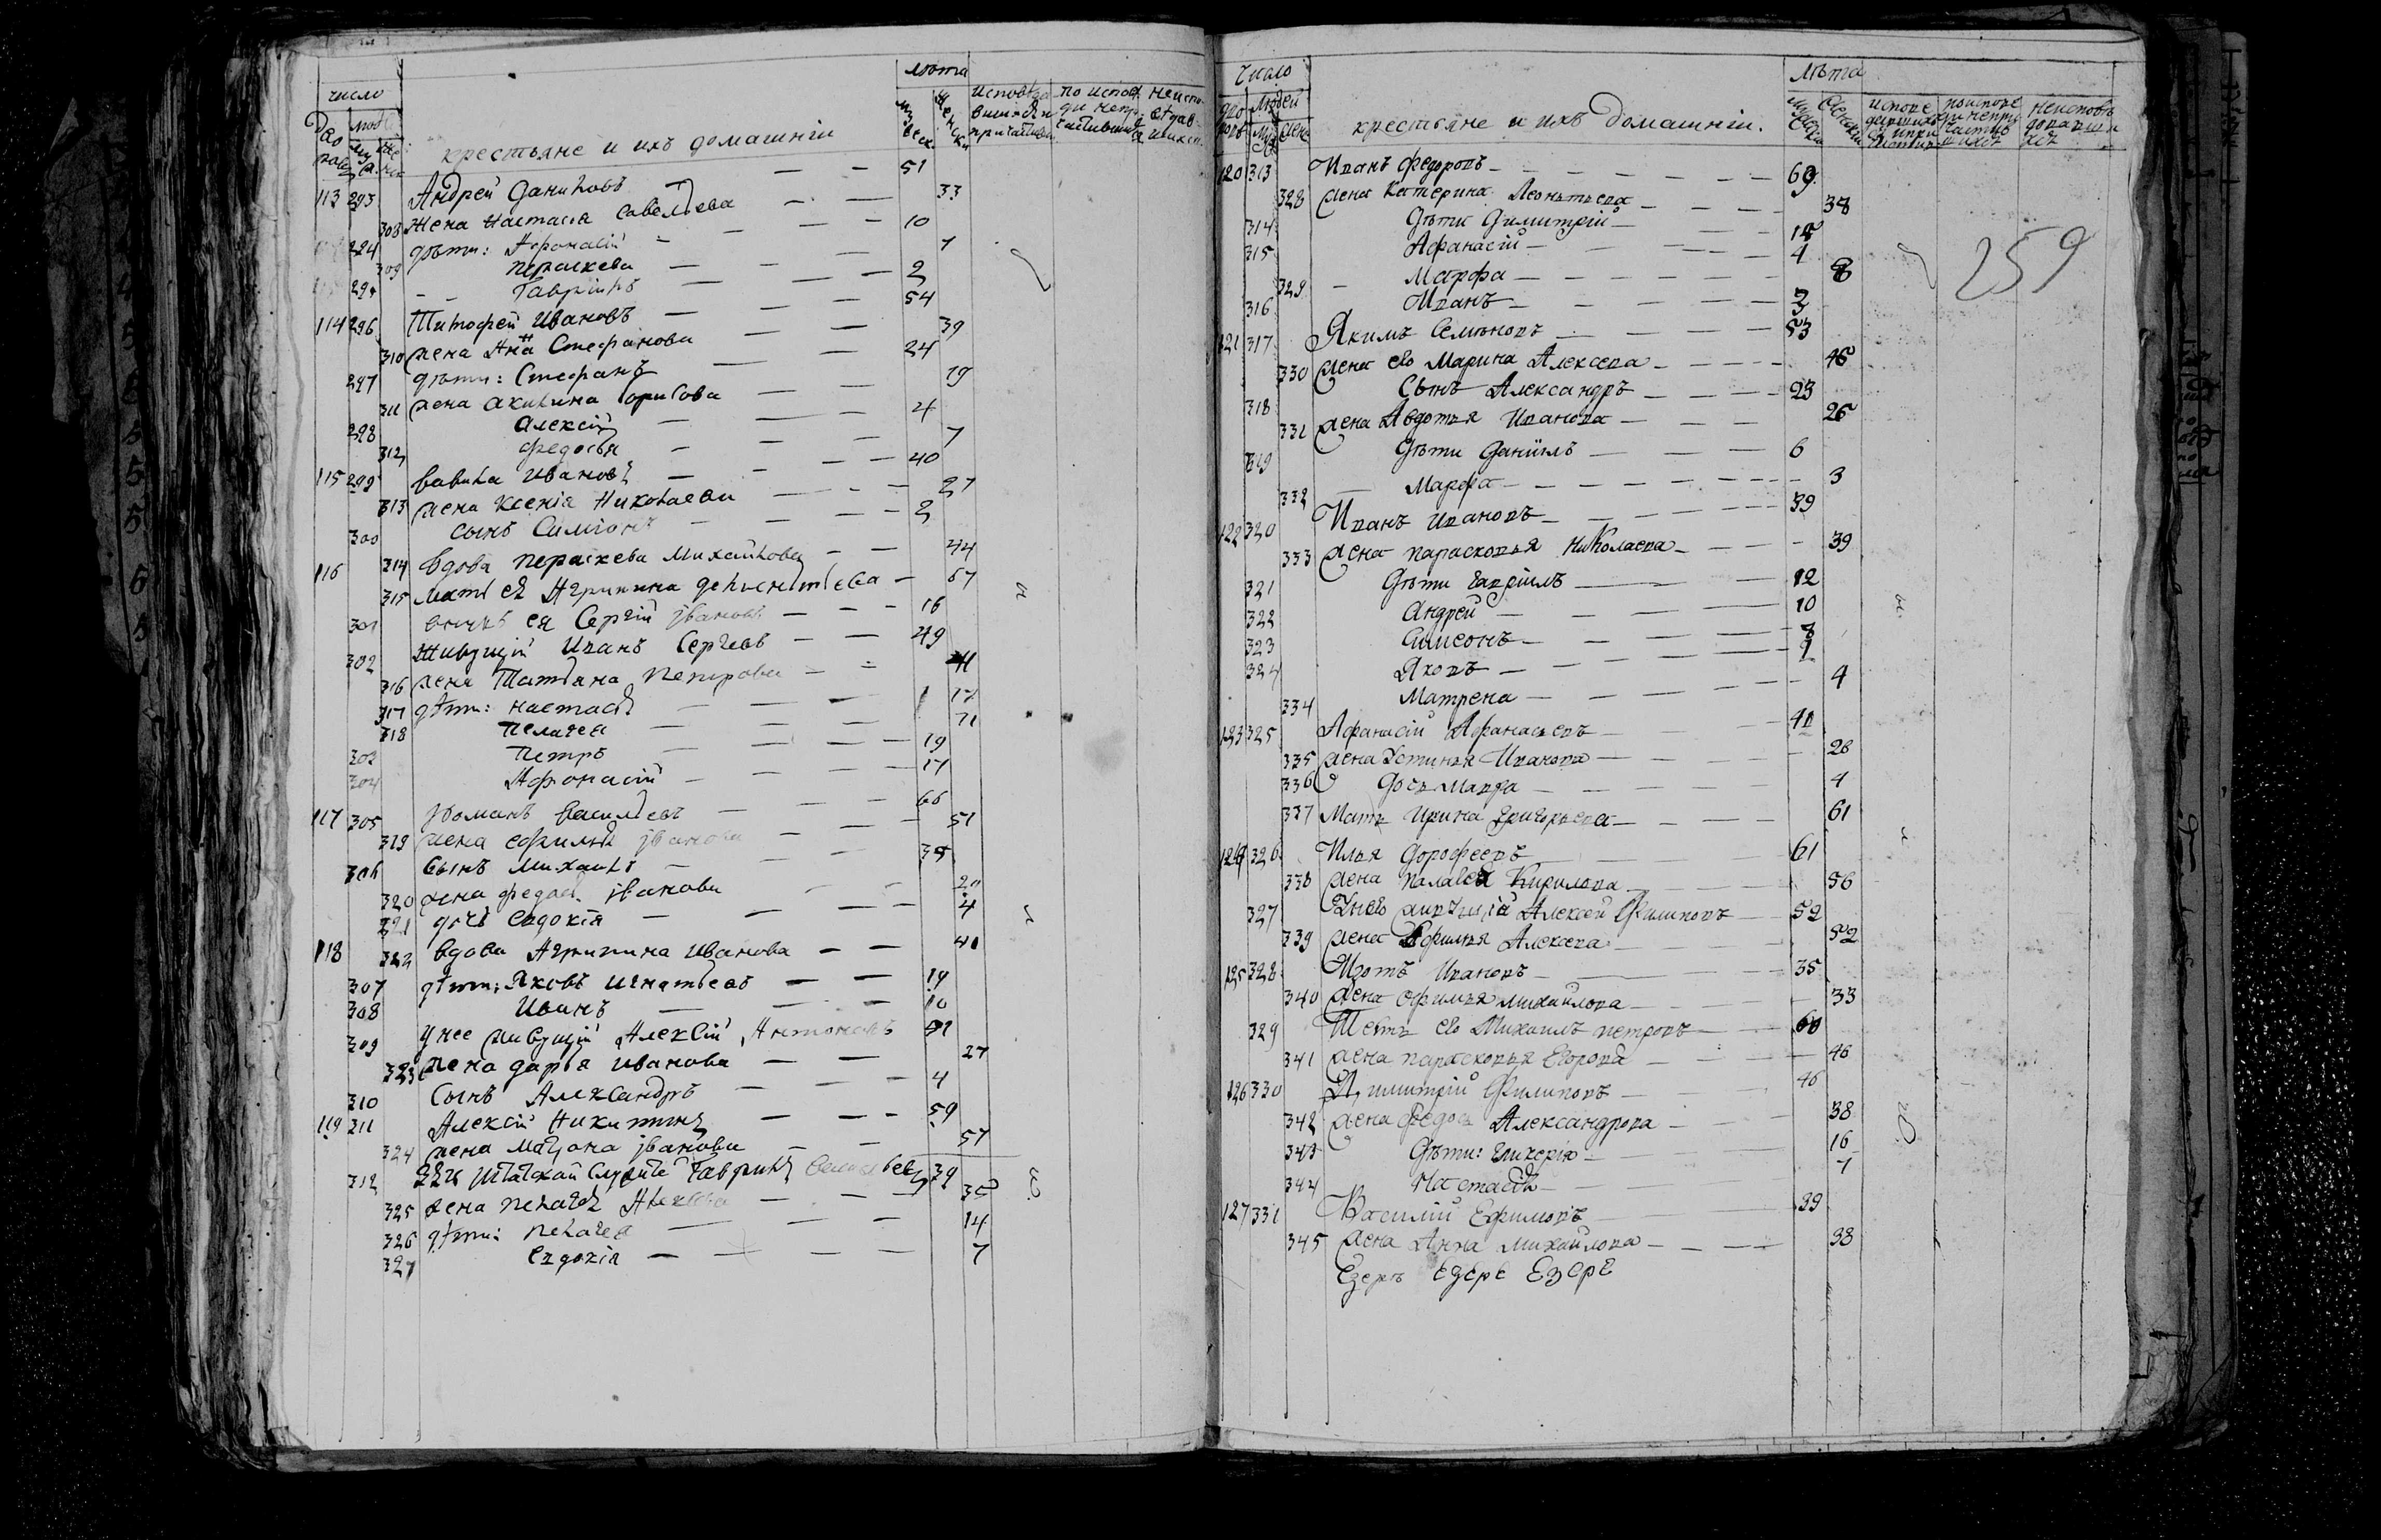 число
лѣта
дво
ровъ
муж
жен
крестьяне и ихъ домашнiи
мужеск
женски
113 293 Андрей Даниловъ 51
308 Жена Настасiя Савельева 33
294 дѣти: Афонасiй 10
309 Параскева 7
295 Гаврiилъ 2
114 296 Тимофей Ивановъ 54
310 жена Анна Стефанова 39
297 дѣти: Стефанъ 24
311 жена Акилина Борисова 19
298 Алексiй 4
312 Федосья 7
115 299 Вавила Ивановъ 40
313 жена Ксенiя Николаева 27
300 сынъ Симiонъ 2
116 314 вдова Параскева Михайлова 44
315 мать ея Агрипина 67
301 внукъ ея Сергiй Iвановъ 16
302 Живущiй Иванъ Сергiевъ 49
316 жена Татьяна Петрова 41
317 дѣти: Настасья 17
318 Пелагея 11
303 Петръ 19
304 Афонасiй 17
117 305 Романъ Васильевъ 66
319 жена Ефимья Iванова 51
306 сынъ Михаилъ 35
320 жена Федос. Iванова 20
321 дочь Евдокiя 4
118 322 вдова Агрипина Иванова 40
307 дѣти: Яковъ Игнатьевъ 19
308 Иванъ 10
309 у нее живущiй Алексiй Антоновъ 31
323 жена Дарья Иванова 27
310 сынъ Александръ 4
119 311 Алексiй Никитинъ 59
324 жена Матрона Iванова 57
312 Гаврилъ 39
325 жена Пелагея Алексеева 35
326 дѣти: Пелагея 14
327 Евдокiя 7
число
лѣта
дво
ровъ
людей
муж
жена
крестьяне и ихъ домашнiи.
259
120 313 Иванъ Федоровъ 69
328 жена Катерина Леонтьева 38
314 Дѣти Димитрiй 15
315 Афанасiй 4
329 Марфа 8
316 Иванъ 2
121 317 Якимъ Семеновъ 53
330 жена его Марина Алексева 45
318 Сынъ Александръ 23
331 жена Авдотья Иванова 25
319 Дѣти Данiилъ 6
332 Марфа 3
122 320 Иванъ Ивановъ 39
333 жена Парасковья Николаева 39
321 Дѣти Гаврiилъ 12
322 Андрей 10
323 Симеонъ 7
324 Яковъ 1
334 Матрена 4
123 325 Афанасiй Афанасьевъ 41
335 жена Устинья Иванова 28
336 дочь Марфа 4
337 Мать Ирина Григорьева 61
124 326 Илья Дорофеевъ 61
338 жена Палагея Кирилова 56
327 У него живущiй Алексей Филиповъ 52
339 жена Ефимья Алексева 52
125 328 Изотъ Ивановъ 35
340 жена Офимья Михайлова 33
329 Тесть его Михаилъ Петровъ 60
341 жена Парасковья Егорова 46
126 330 Димитрiй Филиповъ 46
342 жена Федос Александрова 38
343 Дѣти: Гликерiя 16
344 Настасья 7
127 331 Василiй Ефимовъ 39
345 жена Анна Михайлова 38
Езеръ Езерс Езере